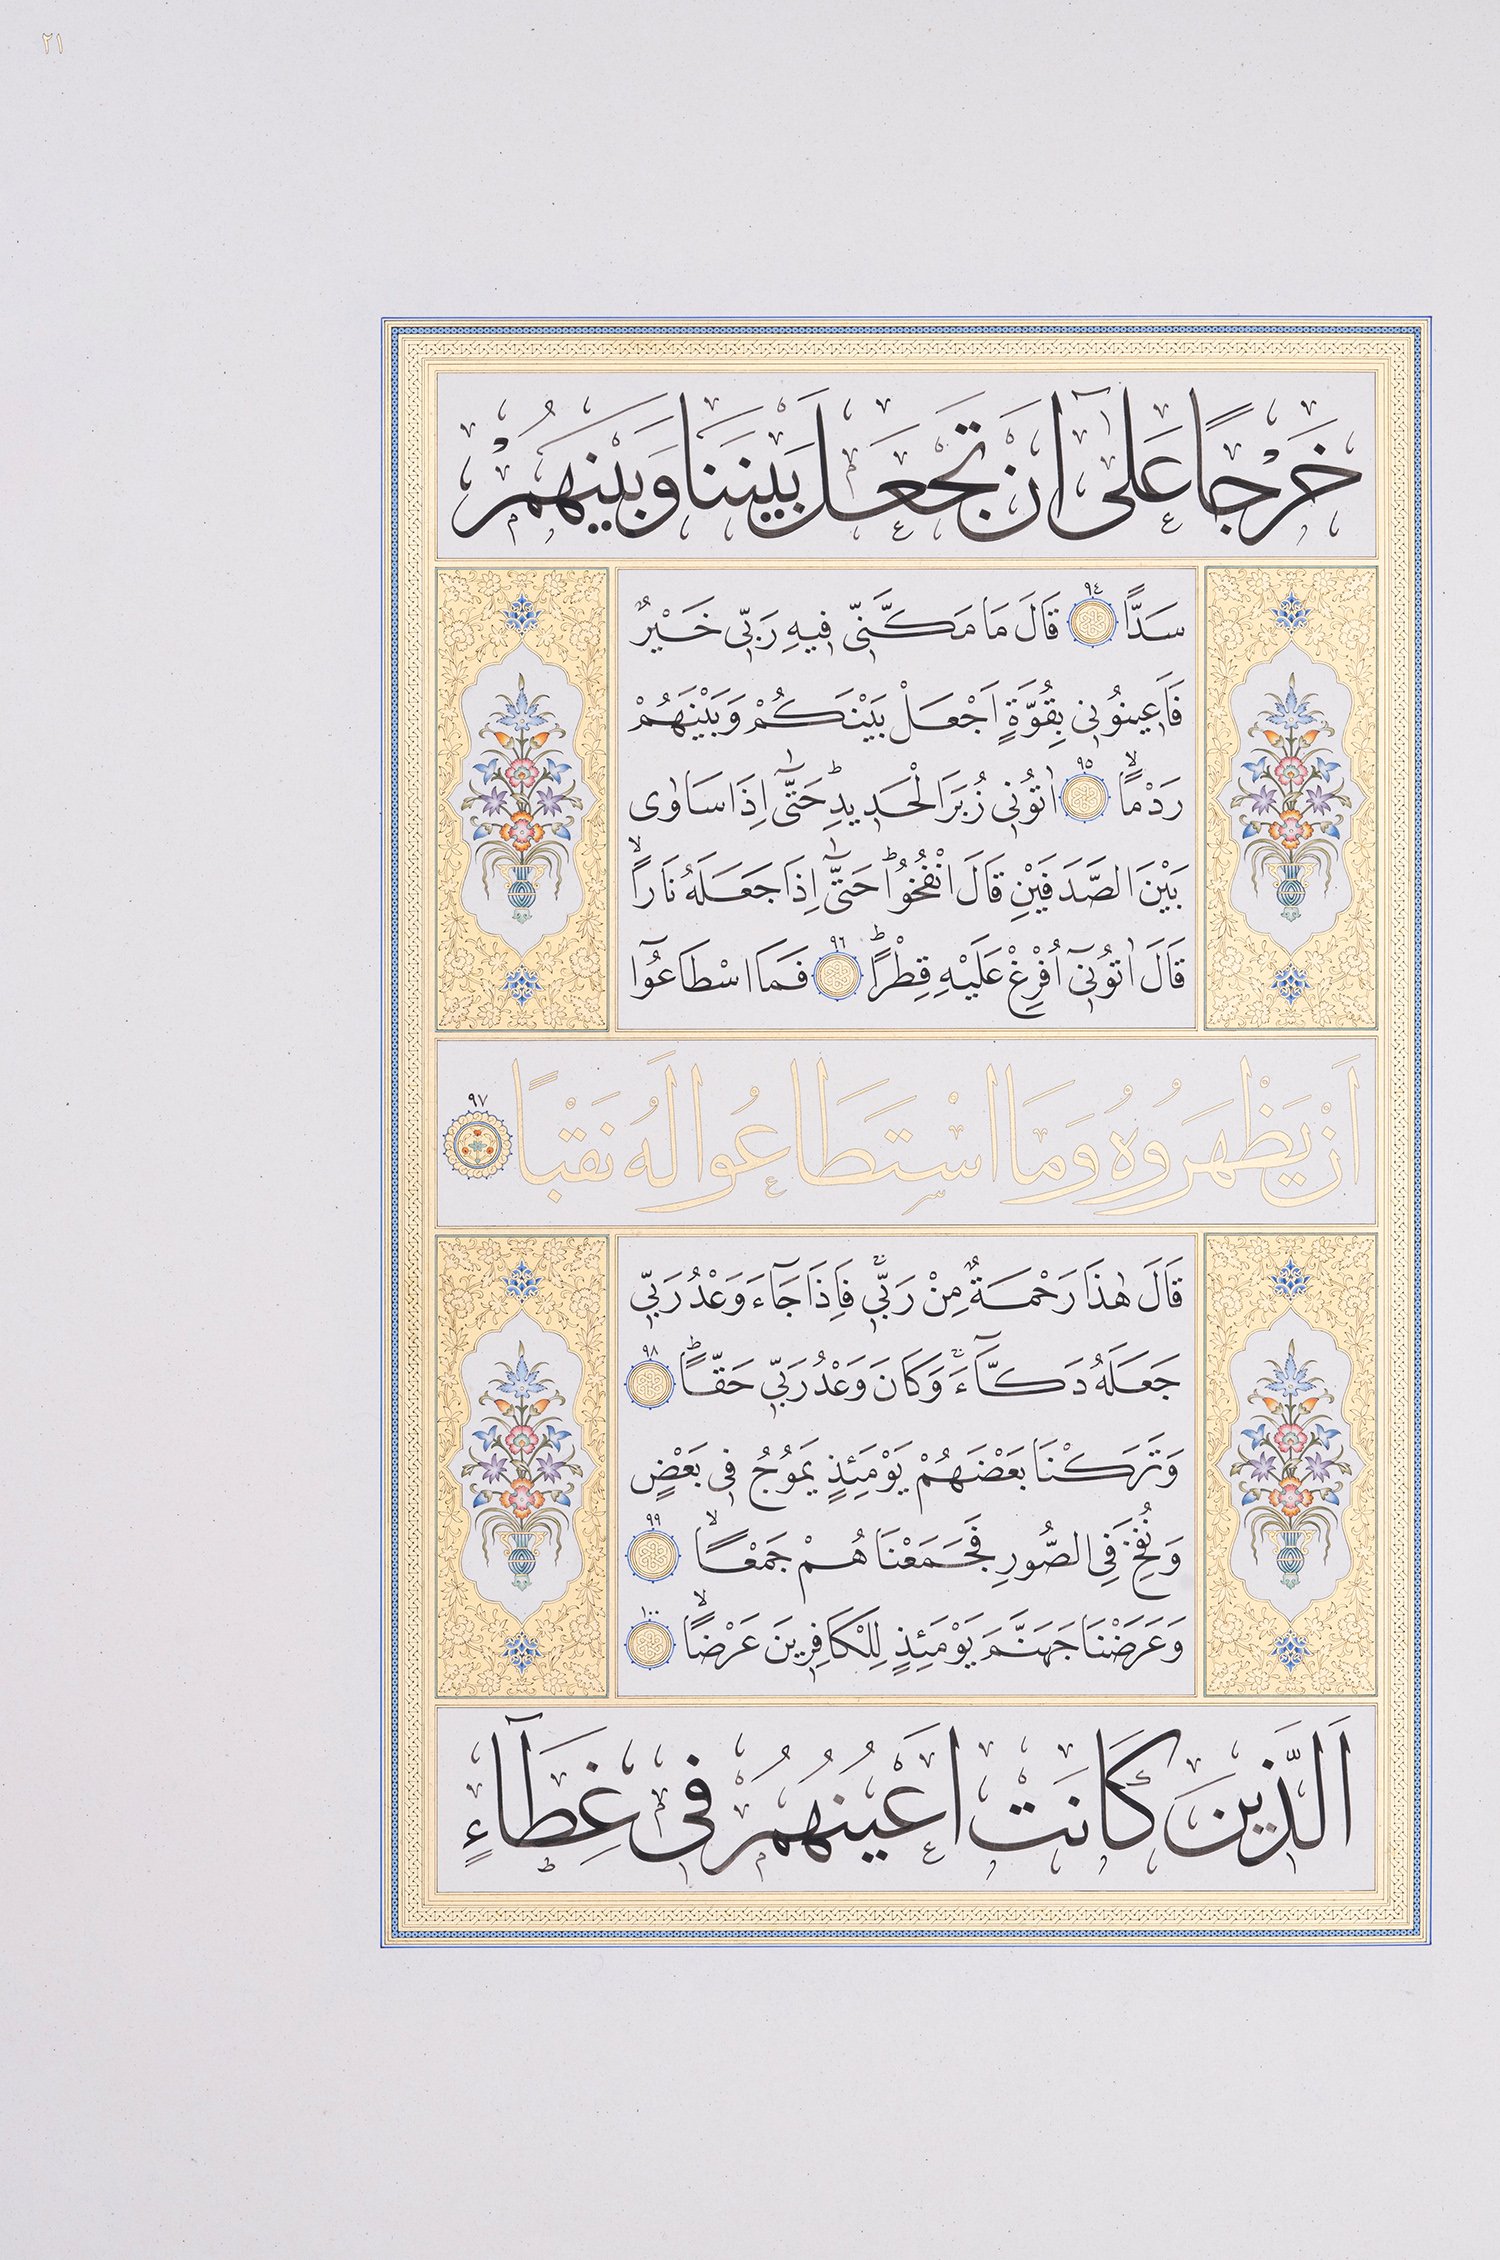 ٢١
خَرْجًا عَلٰٓى اَنْ تَجْعَلَ بَيْنَنَا وَبَيْنَهُمْ
سَدًّا ٩٤ قَالَ مَا مَكَّنّ۪ى ف۪يهِ رَبّ۪ى خَيْرٌ
فَاَع۪ينُون۪ى بِقُوَّةٍ اَجْعَلْ بَيْنَكُمْ وَبَيْنَهُمْ
رَدْمًاۙ ٩٥ اٰتُون۪ى زُبَرَ الْحَد۪يدِۜ حَتّٰٓى اِذَا سَاوٰى
بَيْنَ الصَّدَفَيْنِ قَالَ انْفُخُواۜ حَتّٰٓى اِذَا جَعَلَهُ نَارًاۙ
قَالَ اٰتُون۪ٓى اُفْرِغْ عَلَيْهِ قِطْرًاۜ ٩٦ فَمَا اسْطَاعُٓوا
اَنْ يَظْهَرُوهُ وَمَا اسْتَطَاعُوا لَهُ نَقْبًا ٩٧
قَالَ هٰذَا رَحْمَةٌ مِنْ رَبّ۪ىۚ فَاِذَا جَٓاءَ وَعْدُ رَبّ۪ى
جَعَلَهُ دَكَّٓاءَۚ وَكَانَ وَعْدُ رَبّ۪ى حَقًّاۜ ٩٨
وَتَرَكْنَا بَعْضَهُمْ يَوْمَئِذٍ يَمُوجُ ف۪ى بَعْضٍ
وَنُفِخَ فِى الصُّورِ فَجَمَعْنَاهُمْ جَمْعًاۙ ٩٩
وَعَرَضْنَا جَهَنَّمَ يَوْمَئِذٍ لِلْكَافِر۪ينَ عَرْضًاۙ ١٠٠
اَلَّذ۪ينَ كَانَتْ اَعْيُنُهُمْ ف۪ى غِطَٓاءٍ